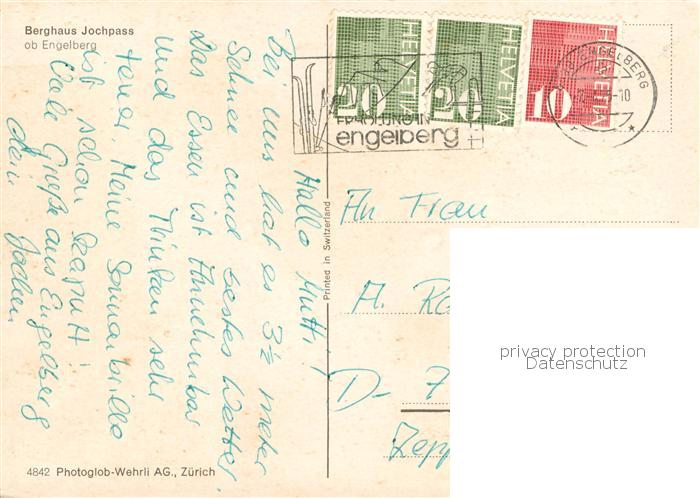 Berghaus Jochpass
ob Engelberg
HELVETIA
20
HELVETIA
20
HELVETIA
10
ERHOLUNG IN
engelberg
ENGELBERG
-10
Hallo Mutti!
Bei uns hat es 3½ meter
Schnee und bestes Wetter.
Das Essen ist Annehmbar
und das Trinken sehr
teuer. Meine Sonnenbrille
ist schon kaputt!
Viele Grüße aus Engelberg
dein
Jochen
Printed in Switzerland
An Frau
A.
D- 7
Zepp
privacy protection
Datenschutz
4842 Photoglob-Wehrli AG., Zürich